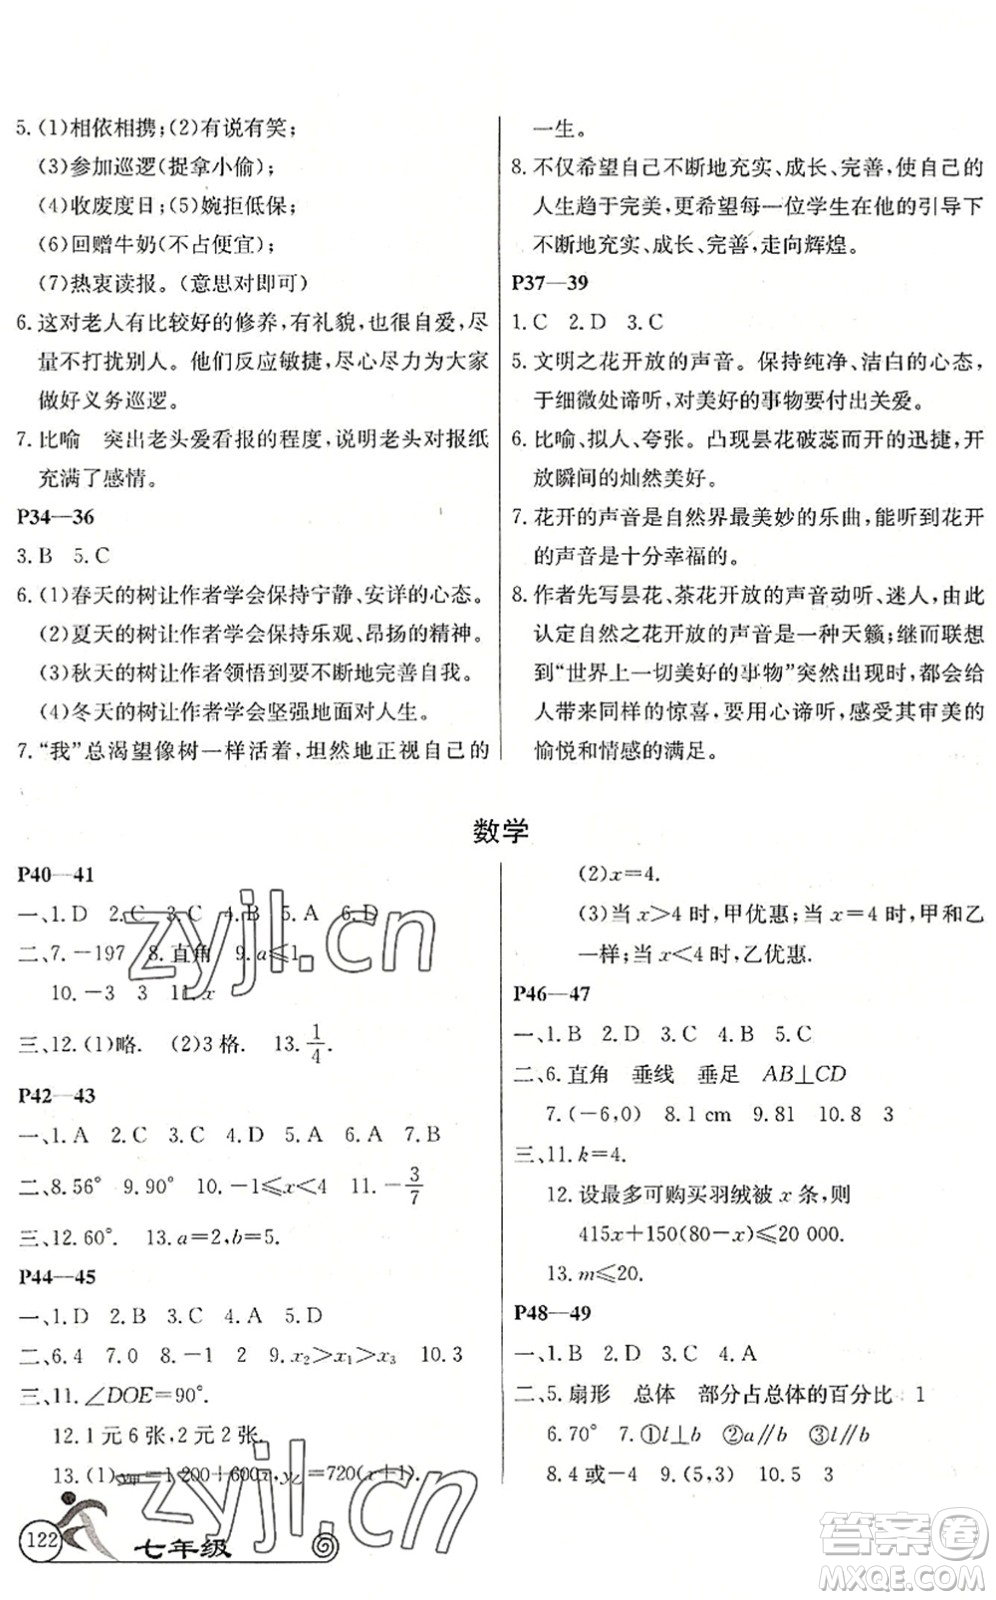 5. (1)相依相携；(2)有说有笑；
(3)参加巡逻(捉拿小偷)；
(4)收废度日；(5)婉拒低保；
(6)回赠牛奶(不占便宜)；
(7)热衷读报。(意思对即可)
6. 这对老人有比较好的修养，有礼貌，也很自爱，尽
量不打扰别人。他们反应敏捷，尽心尽力为大家
做好义务巡逻。
7. 比喻　突出老头爱看报的程度，说明老头对报纸
充满了感情。
P34—36
3. B　5. C
6. (1)春天的树让作者学会保持宁静、安详的心态。
(2)夏天的树让作者学会保持乐观、昂扬的精神。
(3)秋天的树让作者领悟到要不断地完善自我。
(4)冬天的树让作者学会坚强地面对人生。
7. “我”总渴望像树一样活着，坦然地正视自己的
一生。
8. 不仅希望自己不断地充实、成长、完善，使自己的
人生趋于完美，更希望每一位学生在他的引导下
不断地充实、成长、完善，走向辉煌。
P37—39
1. C　2. D　3. C
5. 文明之花开放的声音。保持纯净、洁白的心态，
于细微处谛听，对美好的事物要付出关爱。
6. 比喻、拟人、夸张。凸现昙花破蕊而开的迅捷，开
放瞬间的灿然美好。
7. 花开的声音是自然界最美妙的乐曲，能听到花开
的声音是十分幸福的。
8. 作者先写昙花、茶花开放的声音动听、迷人，由此
认定自然之花开放的声音是一种天籁；继而联想
到“世界上一切美好的事物”突然出现时，都会给
人带来同样的惊喜，要用心谛听，感受其审美的
愉悦和情感的满足。
数学
P40—41
一、1. D　2. C　3. C　4. B　5. A　6. D
二、7. －197　8. 直角　9. a≤1
10. －3　3　11. x
三、12. (1)略.　(2)3格.　13. 1/4.
P42—43
一、1. A　2. C　3. C　4. D　5. A　6. A　7. B
二、8. 56°　9. 90°　10. －1≤x＜4　11. －3/7
三、12. 60°.　13. a＝2,b＝5.
P44—45
一、1. D　2. B　3. C　4. A　5. D
二、6. 4　7. 0　8. －1　2　9. x₂＞x₁＞x₃　10. 3
三、11. ∠DOE＝90°.
12. 1元6张,2元2张.
13. (1)y甲＝1 200＋600x,y乙＝720(x＋1).
(2)x＝4.
(3)当x＞4时,甲优惠；当x＝4时,甲和乙
一样；当x＜4时,乙优惠.
P46—47
一、1. B　2. D　3. C　4. B　5. D
二、6. 直角　垂线　垂足　AB⊥CD
7. (－6,0)　8. 1 cm　9. 81　10. 8　3
三、11. k＝4.
12. 设最多可购买羽绒被x条,则
415x＋150(80－x)≤20 000.
13. m≤20.
P48—49
一、1. B　2. D　3. C　4. A
二、5. 扇形　总体　部分占总体的百分比　1
6. 70°　7. ①l⊥b　②a∥b　③l∥b
8. 4或－4　9. (5,3)　10. 5　3
122
七年级
zyjl.cn
zyjl.cn
答案卷
MXQE.COM